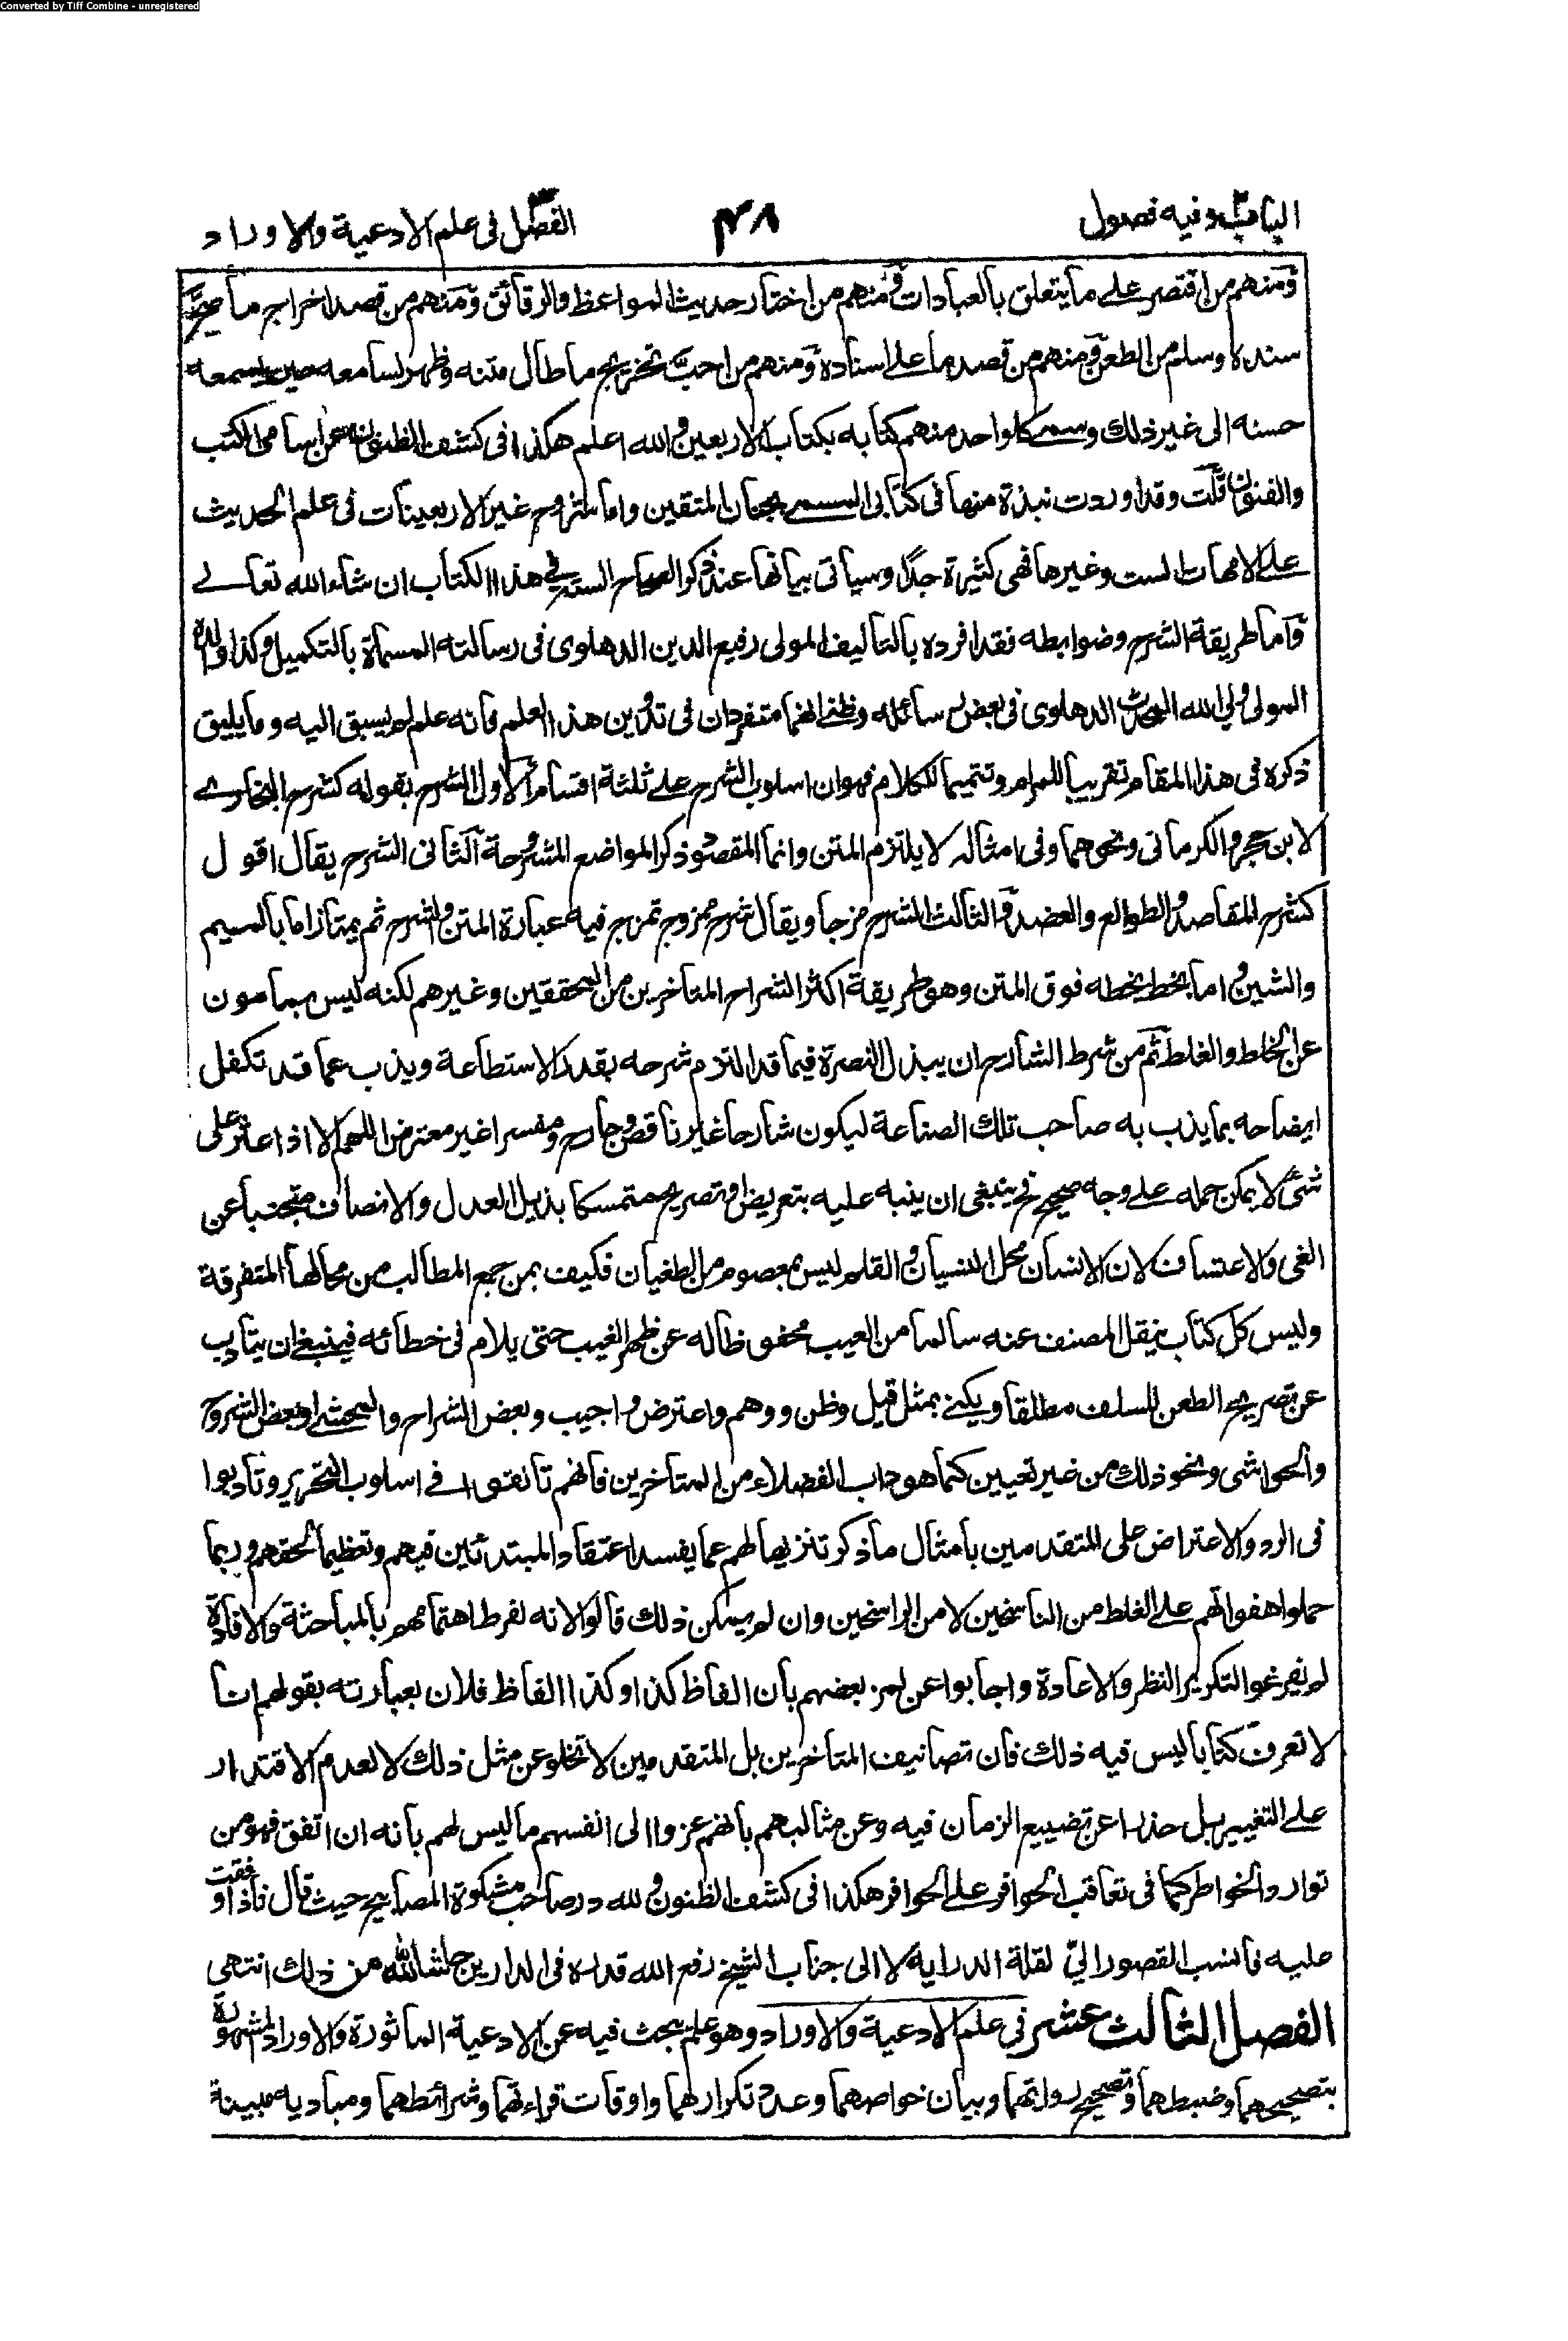 Converted by Tiff Combine - unregistered
الباب وفيه فصول
٤٨
الفصل فى علم الادعية والاوراد
ومنهم من اقتصر على ما يتعلق بالعبادات ومنهم من اختار حديث المواعظ والرقائق ومنهم من قصد اخراج ما صح
سنده وسلم من الطعن ومنهم من قصد ما علا اسناده ومنهم من احب تخريج ما طال متنه وظهر لسامعه حين يسمعه
حسنه الى غير ذلك وسمى كل واحد منهم كتابه بكتاب الاربعين والله اعلم هكذا فى كشف الظنون عن اسامى الكتب
والفنون قلت وقد اوردت نبذة منها فى كتابى المسمى بجنان المتقين واما شروح غير الاربعينات فى علم الحديث
على الامهات الست وغيرها فهى كثيرة جدا وسياتى بيانها عند ذكر الصحاح الستة فى هذا الكتاب ان شاء الله تعالى
واما طريقة الشرح وضوابطه فقد افرده بالتاليف المولى رفيع الدين الدهلوى فى رسالته المسماة بالتكميل وكذا والده
المولى ولي الله المحدث الدهلوى فى بعض رسائله وظنى انهما متفردان فى تدوين هذا العلم فانه علم لم يسبق اليه وما يليق
ذكره فى هذا المقام تقريبا للمرام وتتميما للكلام فهو ان اسلوب الشرح على ثلثة اقسام الاول الشرح بقوله كشرح البخارى
لابن حجر والكرمانى ونحوهما وفى امثاله لا يلتزم المتن وانما المقصود ذكر المواضع المشروحة الثانى الشرح يقال اقول
كشرح المقاصد والطوالع والعضد والثالث الشرح مزجا ويقال شرح ممزوج تمزج فيه عبارة المتن والشرح ثم يمتاز اما بالميم
والشين واما بخط يخطه فوق المتن وهو طريقة اكثر الشراح المتاخرين من المحققين وغيرهم لكنه ليس بمامون
عن الخلط والغلط ثم من شرط الشارح ان يبذل النصرة فيما قد التزم شرحه بقدر الاستطاعة ويذب عما قد تكفل
ايضاحه بما يذب به صاحب تلك الصناعة ليكون شارحا غير ناقض وجارح ومفسرا غير معترض اللهم الا اذا عثر على
شئ لا يمكن حمله على وجه صحيح فح ينبغى ان ينبه عليه بتعريض او تصريح متمسكا بذيل العدل والانصاف متجنبا عن
الغى والاعتساف لان الانسان محل النسيان والقلم ليس بمعصوم من الطغيان فكيف بمن جمع المطالب من محالها المتفرقة
وليس كل كتاب ينقل المصنف عنه سالما من العيب محفوظا له عن ظهر الغيب حتى يلام فى خطائه فينبغى ان يتادب
عن تصريح الطعن للسلف مطلقا ويكنى بمثل قيل وظن ووهم واعترض واجيب وبعض الشراح والمحشى او بعض الشروح
والحواشى ونحو ذلك من غير تعيين كما هو داب الفضلاء من المتاخرين فانهم تانقوا فى اسلوب التحرير وتادبوا
فى الرد والاعتراض على المتقدمين بامثال ما ذكر تنزيها لهم عما يفسد اعتقاد المبتدئين فيهم وتعظيما لحقهم وربما
حملوا هفواتهم على الغلط من الناسخين لا من الراسخين وان لم يمكن ذلك قالوا لانه لفرط اهتمامهم بالمباحثة والافادة
لم يفرغوا لتكرير النظر والاعادة واجابوا عن لمز بعضهم بان الفاظ كذا وكذا الفاظ فلان بعبارته بقولهم انا
لا نعرف كتابا ليس فيه ذلك فان تصانيف المتاخرين بل المتقدمين لا تخلو عن مثل ذلك لا لعدم الاقتدار
على التغيير بل حذرا عن تضييع الزمان فيه وعن مثالبهم بانهم عزوا الى انفسهم ما ليس لهم بانه ان اتفق فهو من
توارد الخواطر كما فى تعاقب الحوافر على الحوافر هكذا فى كشف الظنون ولله در صاحب مشكوة المصابيح حيث قال فاذا وقفت
عليه فانسب القصور الي لقلة الدراية لا الى جناب الشيخ رفع الله قدره فى الدارين حاشا لله من ذلك انتهى
الفصل الثالث عشر فى علم الادعية والاوراد وهو علم يبحث فيه عن الادعية الماثورة والاوراد المشهورة
بتصحيحهما وضبطهما وتصحيح روايتهما وبيان خواصهما وعدد تكرارهما واوقات قراءتهما وشرائطهما ومباديه مبينة